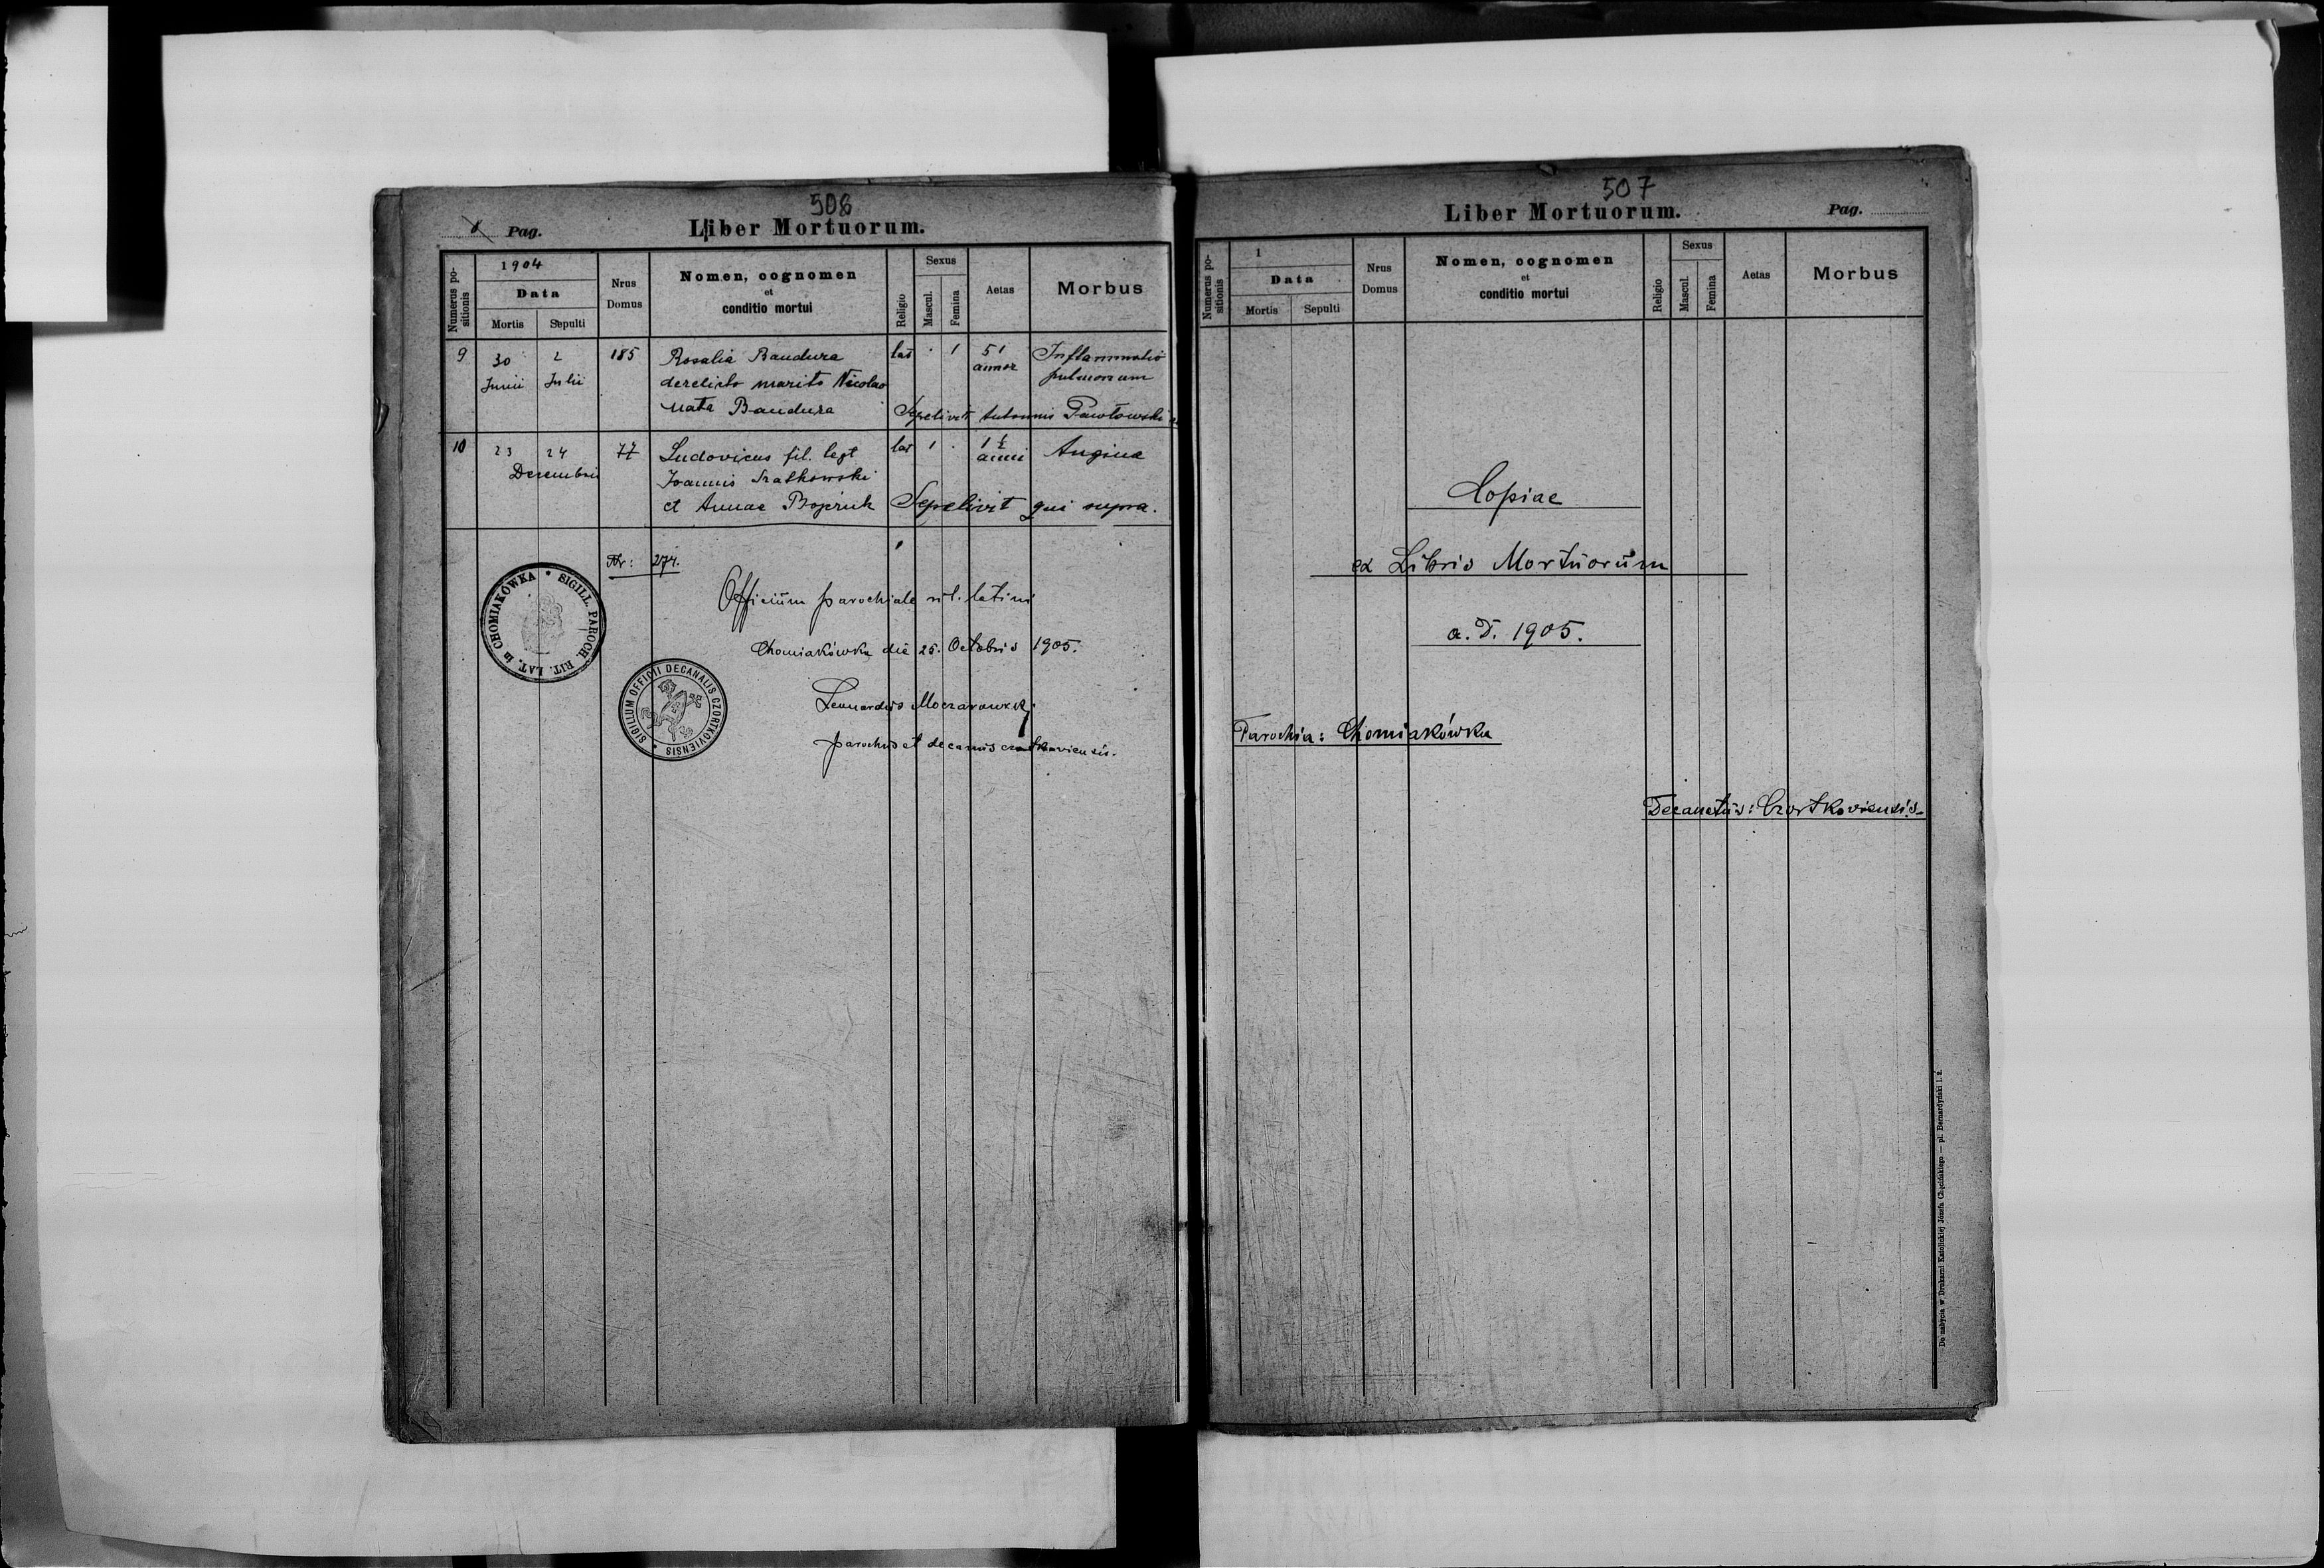 506
Pag.
Liber Mortuorum.
Numerus po-
sitionis
1904
Data
Mortis
Sepulti
Nrus
Domus
Nomen, cognomen
et
conditio mortui
Religio
Sexus
Mascul.
Femina
Aetas
Morbus
9
30
Junii
2
Julii
185
Rosalia Bandura
derelicto marito Nicolao
nata Bandura
lat
1
51
annor
Inflammatio
pulmonum
Sepelivit Antonius Pawłowski
10
23 24
Decembris
77
Ludovicus fil. legt
Joannis
et Annae
lat 1
1 ½
anni
Angina
Sepelivit qui supra.
Nr: 274.
SIGILL. PAROCH. RIT. LAT. in CHOMIAKÓWKA
Officium parochiale rit. latini
Chomiakówka die 25. Octobris 1905.
SIGILLUM OFFICII DECANALIS CZORTKOVIENSIS
Leonardus
parochus et decanus czortkoviensis.
507
Liber Mortuorum.
Pag.
Numerus po-
sitionis
1
Data
Mortis
Sepulti
Nrus
Domus
Nomen, cognomen
et
conditio mortui
Religio
Sexus
Mascul.
Femina
Aetas
Morbus
Copiae
ex Libris Mortuorum
a. D. 1905.
Parochia: Chomiakówka
Decanatus: Czortkoviensis.
Do nabycia w Drukarni Katolickiej Józefa Chęcińskiego — pl. Bernardyński l. 2.